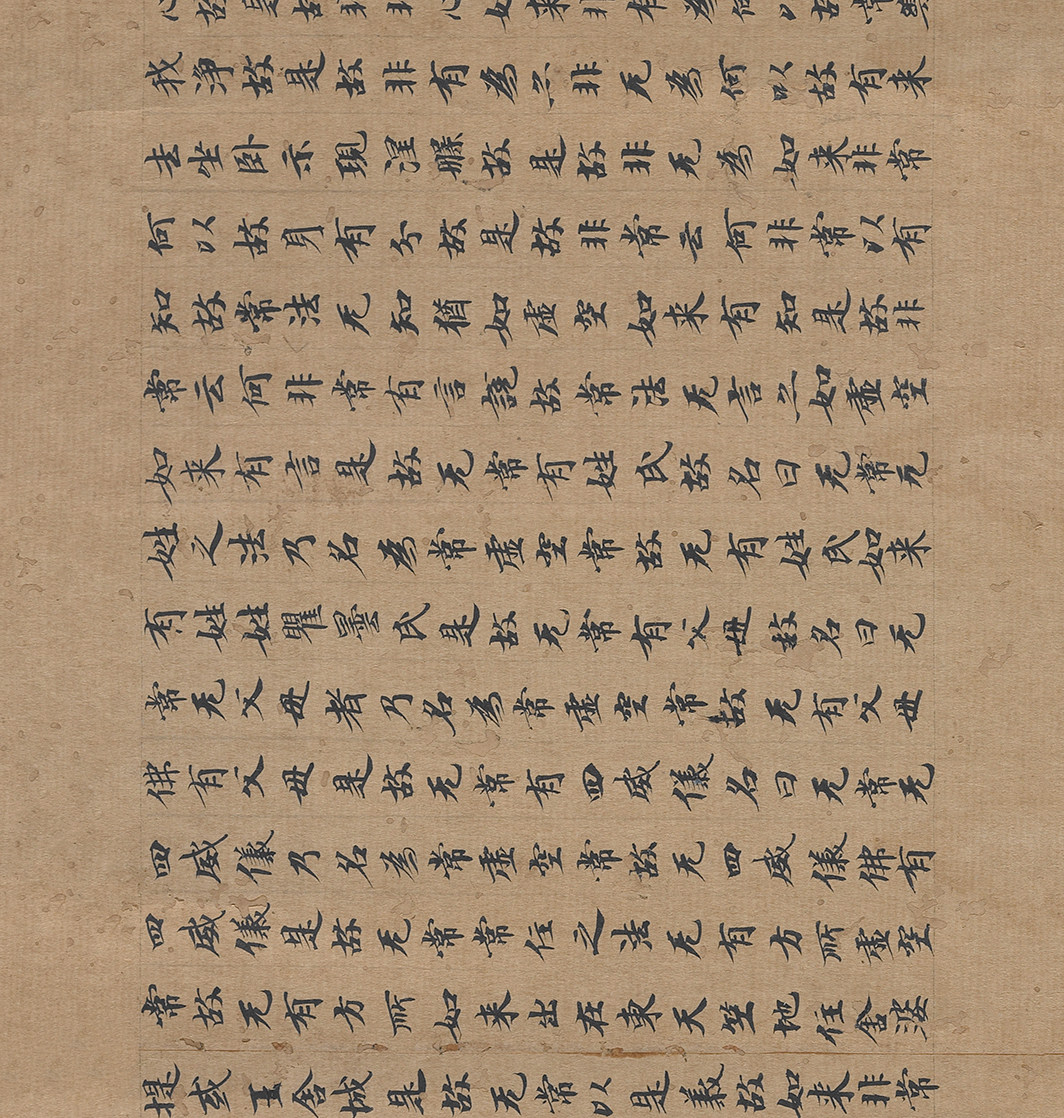 心故是故非非心如来非有為何以故常樂
我淨故是故非有為亦非无為何以故有来
去坐卧示現涅槃故是故非无為如来非常
何以故身有分故是故非常云何非常以有
知故常法无知猶如虛空如来有知是故非
常云何非常有言說故常法无言亦如虛空
如来有言是故无常有姓氏故名曰无常无
姓之法乃名為常虛空常故无有姓氏如来
有姓姓瞿曇氏是故无常有父母故名曰无
常无父母者乃名為常虛空常故无有父母
佛有父母是故无常有四威儀名曰无常无
四威儀乃名為常虛空常故无四威儀佛有
四威儀是故无常常住之法无有方所虛空
常故无有方所如来出在東天竺地住舍婆
提或王舍城是故无常以是義故如来非常